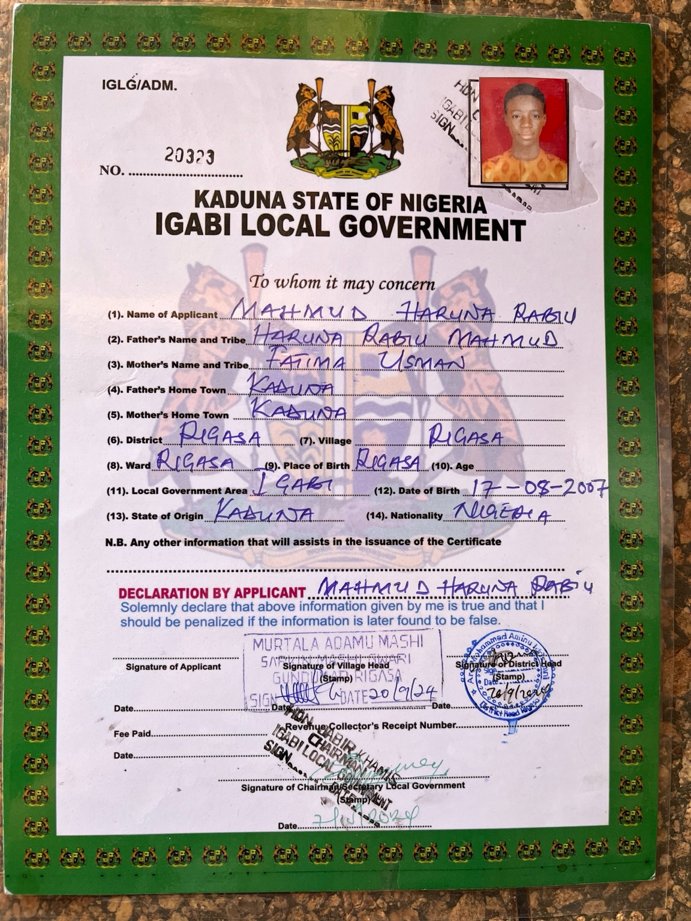 IGLG/ADM.
NO. 20323
KADUNA STATE OF NIGERIA
IGABI LOCAL GOVERNMENT
To whom it may concern
(1). Name of Applicant MAHMUD HARUNA RABIU
(2). Father's Name and Tribe HARUNA RABIU MAHMUD
(3). Mother's Name and Tribe FATIMA USMAN
(4). Father's Home Town KADUNA
(5). Mother's Home Town KADUNA
(6). District RIGASA (7). Village RIGASA
(8). Ward RIGASA (9). Place of Birth RIGASA (10). Age
(11). Local Government Area IGABI (12). Date of Birth 17-08-2007
(13). State of Origin KADUNA (14). Nationality NIGERIA
N.B. Any other information that will assists in the issuance of the Certificate
DECLARATION BY APPLICANT MAHMUD HARUNA RABIU
Solemnly declare that above information given by me is true and that I
should be penalized if the information is later found to be false.
MURTALA ADAMU MASHI
GUNDUMAR RIGASA
SIGN DATE 20/9/24
Signature of Applicant Signature of Village Head (Stamp) Signature of District Head (Stamp)
Date Date Date
Fee Paid Revenue Collector's Receipt Number
Date
HON. JABIR KHAMIS
CHAIRMAN
IGABI LOCAL GOVERNMENT
SIGN DATE
Signature of Chairman/Secretary Local Government
(Stamp)
Date